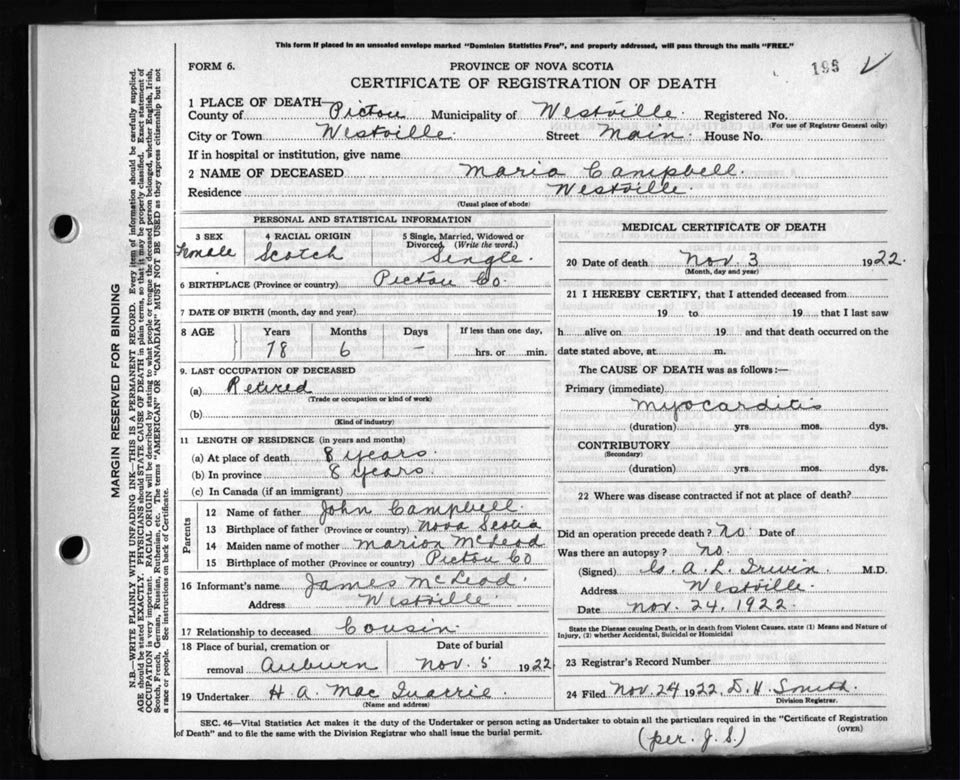 This form if placed in an unsealed envelope marked "Dominion Statistics Free", and properly addressed, will pass through the mails "FREE."
FORM 6.
PROVINCE OF NOVA SCOTIA
193 V
CERTIFICATE OF REGISTRATION OF DEATH
1 PLACE OF DEATH
County of Pictou Municipality of Westville Registered No.
(For use of Registrar General only)
City or Town Westville Street Main House No.
If in hospital or institution, give name
2 NAME OF DECEASED Maria Campbell.
Residence Westville.
(Usual place of abode)
PERSONAL AND STATISTICAL INFORMATION
3 SEX
Female
4 RACIAL ORIGIN
Scotch
5 Single, Married, Widowed or Divorced (Write the word.)
Single.
6 BIRTHPLACE (Province or country) Pictou Co.
7 DATE OF BIRTH (month, day and year)
8 AGE Years Months Days If less than one day,
78 6 – hrs. or min.
9. LAST OCCUPATION OF DECEASED
(a) Retired
(Trade or occupation or kind of work)
(b)
(Kind of industry)
11 LENGTH OF RESIDENCE (in years and months)
(a) At place of death 8 years.
(b) In province 8 years.
(c) In Canada (if an immigrant)
Parents
12 Name of father John Campbell.
13 Birthplace of father (Province or country) Nova Scotia
14 Maiden name of mother Marion McLeod
15 Birthplace of mother (Province or country) Pictou Co
16 Informant's name James McLeod.
Address Westville.
17 Relationship to deceased Cousin.
18 Place of burial, cremation or removal Auburn
Date of burial
Nov. 5 1922
19 Undertaker H. A. Mac Quarrie.
(Name and address)
MEDICAL CERTIFICATE OF DEATH
20 Date of death Nov. 3 1922.
(Month, day and year)
21 I HEREBY CERTIFY, that I attended deceased from
19 to 19 that I last saw
h alive on 19 and that death occurred on
date stated above, at m.
The CAUSE OF DEATH was as follows:—
Primary (immediate)
Myocarditis
(duration) yrs. mos. dys.
CONTRIBUTORY
(Secondary)
(duration) yrs. mos. dys.
22 Where was disease contracted if not at place of death?
Did an operation precede death? No Date of
Was there an autopsy? No.
(Signed) A. L. Irwin. M.D.
Address Westville
Date Nov. 24, 1922.
State the Disease causing Death, or in death from Violent Causes, state (1) Means and Nature of
Injury, (2) whether Accidental, Suicidal or Homicidal
23 Registrar's Record Number
24 Filed Nov. 24 1922. D. H. Smith.
Division Registrar.
SEC. 46—Vital Statistics Act makes it the duty of the Undertaker or person acting as Undertaker to obtain all the particulars required in the "Certificate of Registration
of Death" and to file the same with the Division Registrar who shall issue the burial permit.
(OVER)
(per. J. S.)
MARGIN RESERVED FOR BINDING
N.B.—WRITE PLAINLY WITH UNFADING INK—THIS IS A PERMANENT RECORD. Every item of information should be carefully supplied.
AGE should be stated EXACTLY. PHYSICIANS should STATE CAUSE OF DEATH in plain terms, so that it may be properly classified. Exact statement of
OCCUPATION is very important. RACIAL ORIGIN will be described by stating to what people or tongue the deceased person belonged, whether English, Irish,
Scotch, French, German, Russian, Ruthenian, etc. The terms "AMERICAN" OR "CANADIAN" MUST NOT BE USED as they express citizenship but not
a race or people. See instructions on back of Certificate.